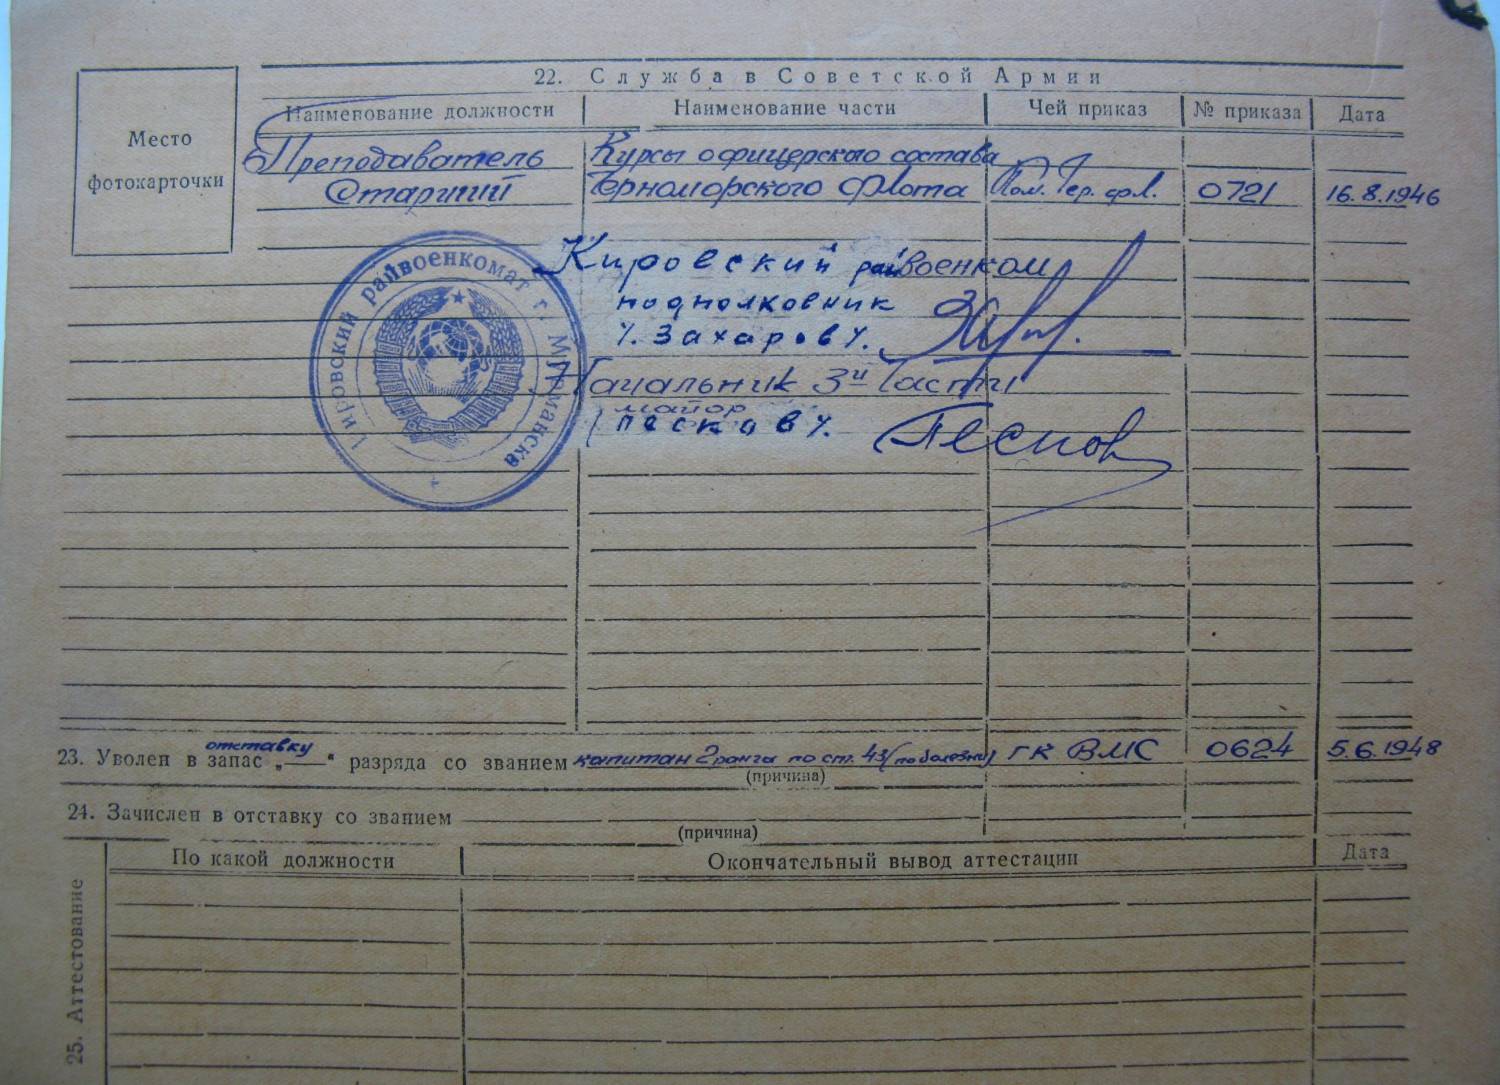 22. Служба в Советской Армии
Место
фотокарточки
Наименование должности | Наименование части | Чей приказ | № приказа | Дата
Преподаватель | Курсы офицерского состава
Старший | Черноморского Флота | Ком. Чер. фл. | 0721 | 16.8.1946
Кировский райвоенкомат г. Мурманска
Кировский райвоенком
подполковник
/. Захаров /.
Начальник 3й Части
майор
/ Песков /.
Песков
отставку
23. Уволен в запас „—“ разряда со званием капитан 2 ранга по ст. 43 (по болезни) ГК ВМС 0624 5.6.1948
(причина)
24. Зачислен в отставку со званием
(причина)
25. Аттестование
По какой должности | Окончательный вывод аттестации | Дата